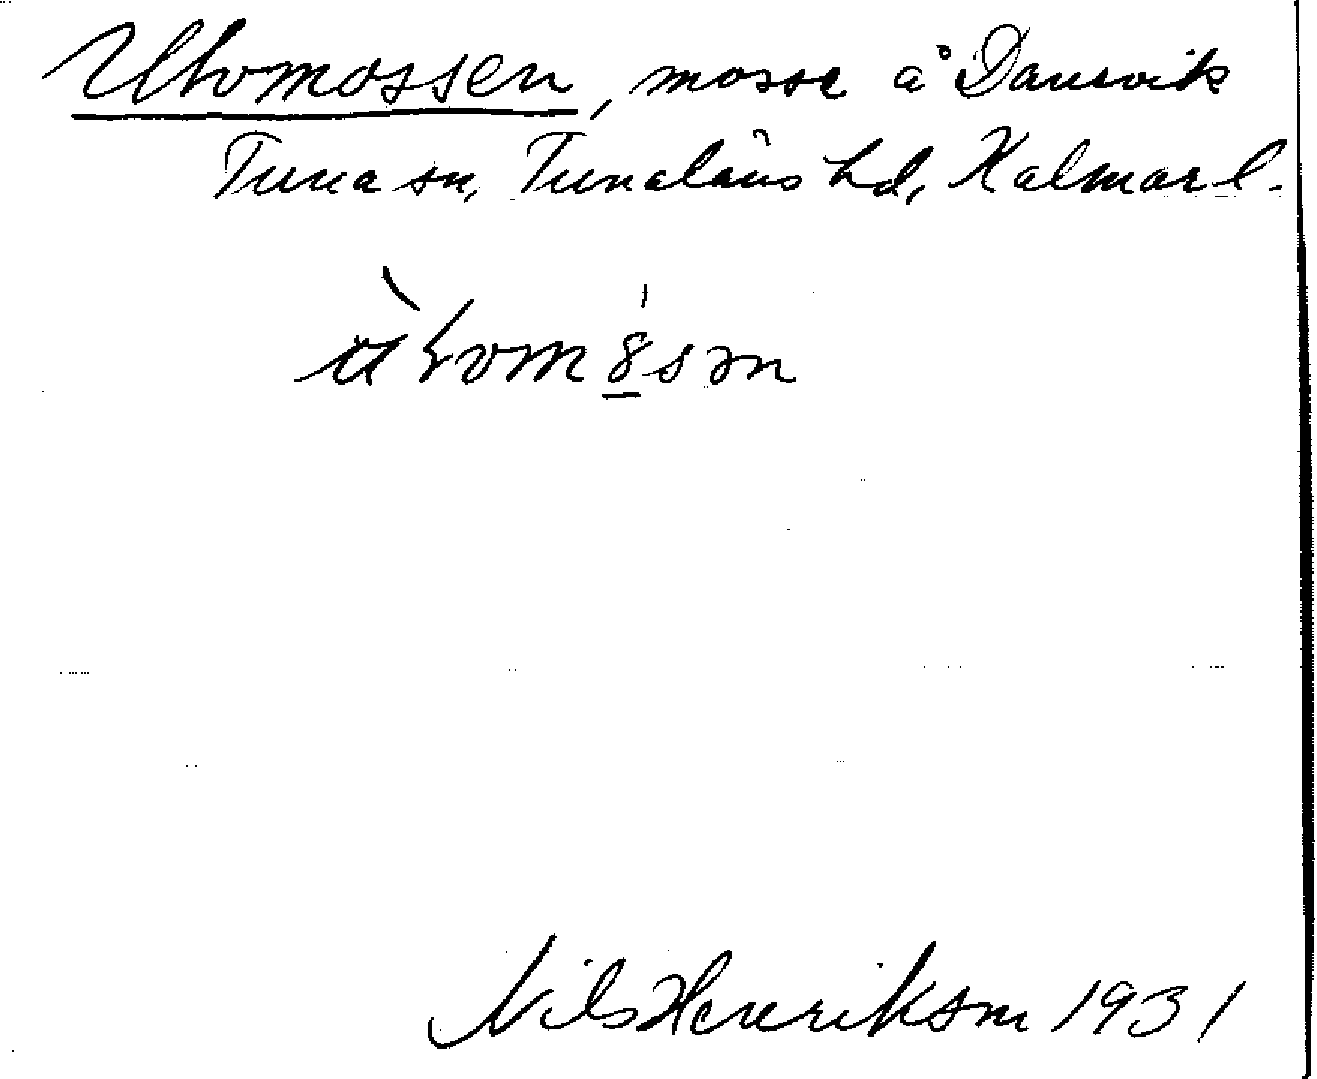 Uhvmossen, mosse å Dansvik
Tuna sn, Tunaläns hd, Kalmar l.
Nils Henrikson 1931